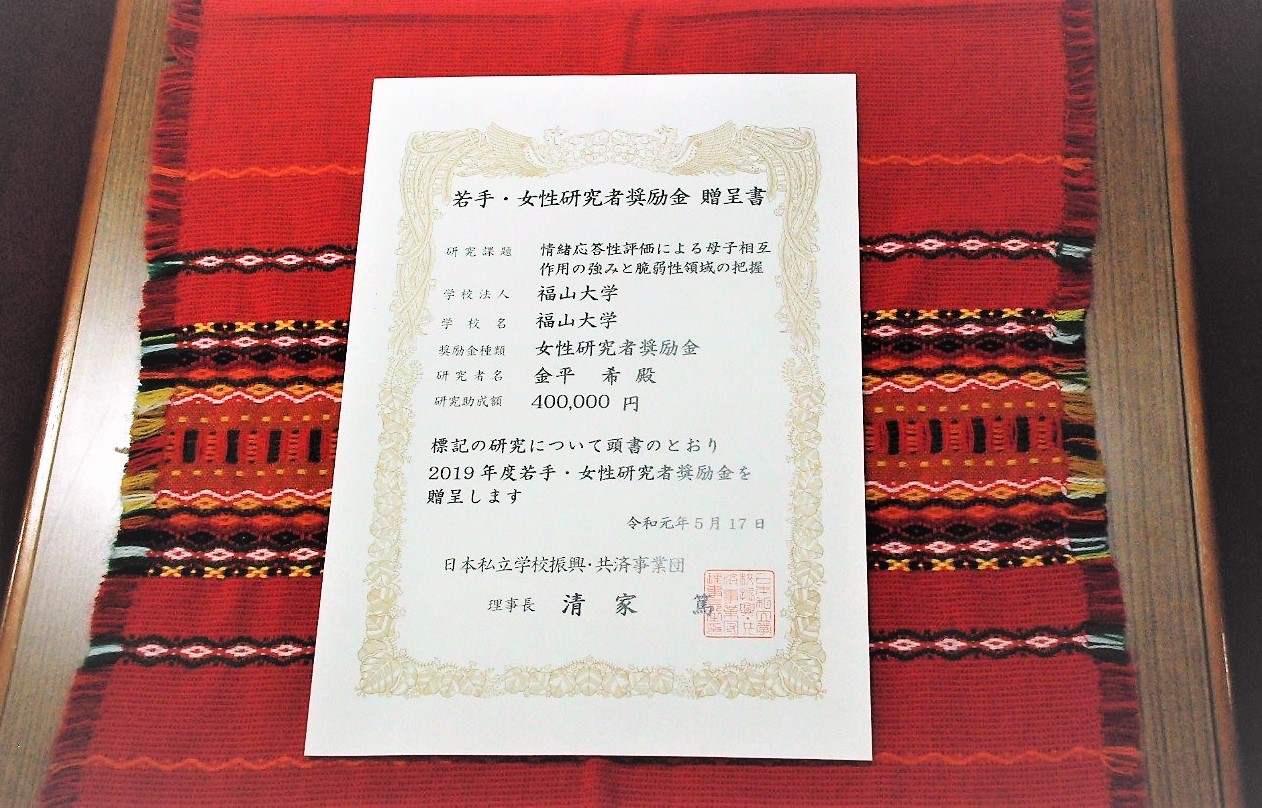 若手・女性研究者奨励金 贈呈書
研究課題 情緒応答性評価による母子相互
作用の強みと脆弱性領域の把握
学校法人 福山大学
学校名 福山大学
奨励金種類 女性研究者奨励金
研究者名 金平 希 殿
研究助成額 400,000 円
標記の研究について頭書のとおり
2019年度若手・女性研究者奨励金を
贈呈します
令和元年5月17日
日本私立学校振興・共済事業団
理事長 清家 篤